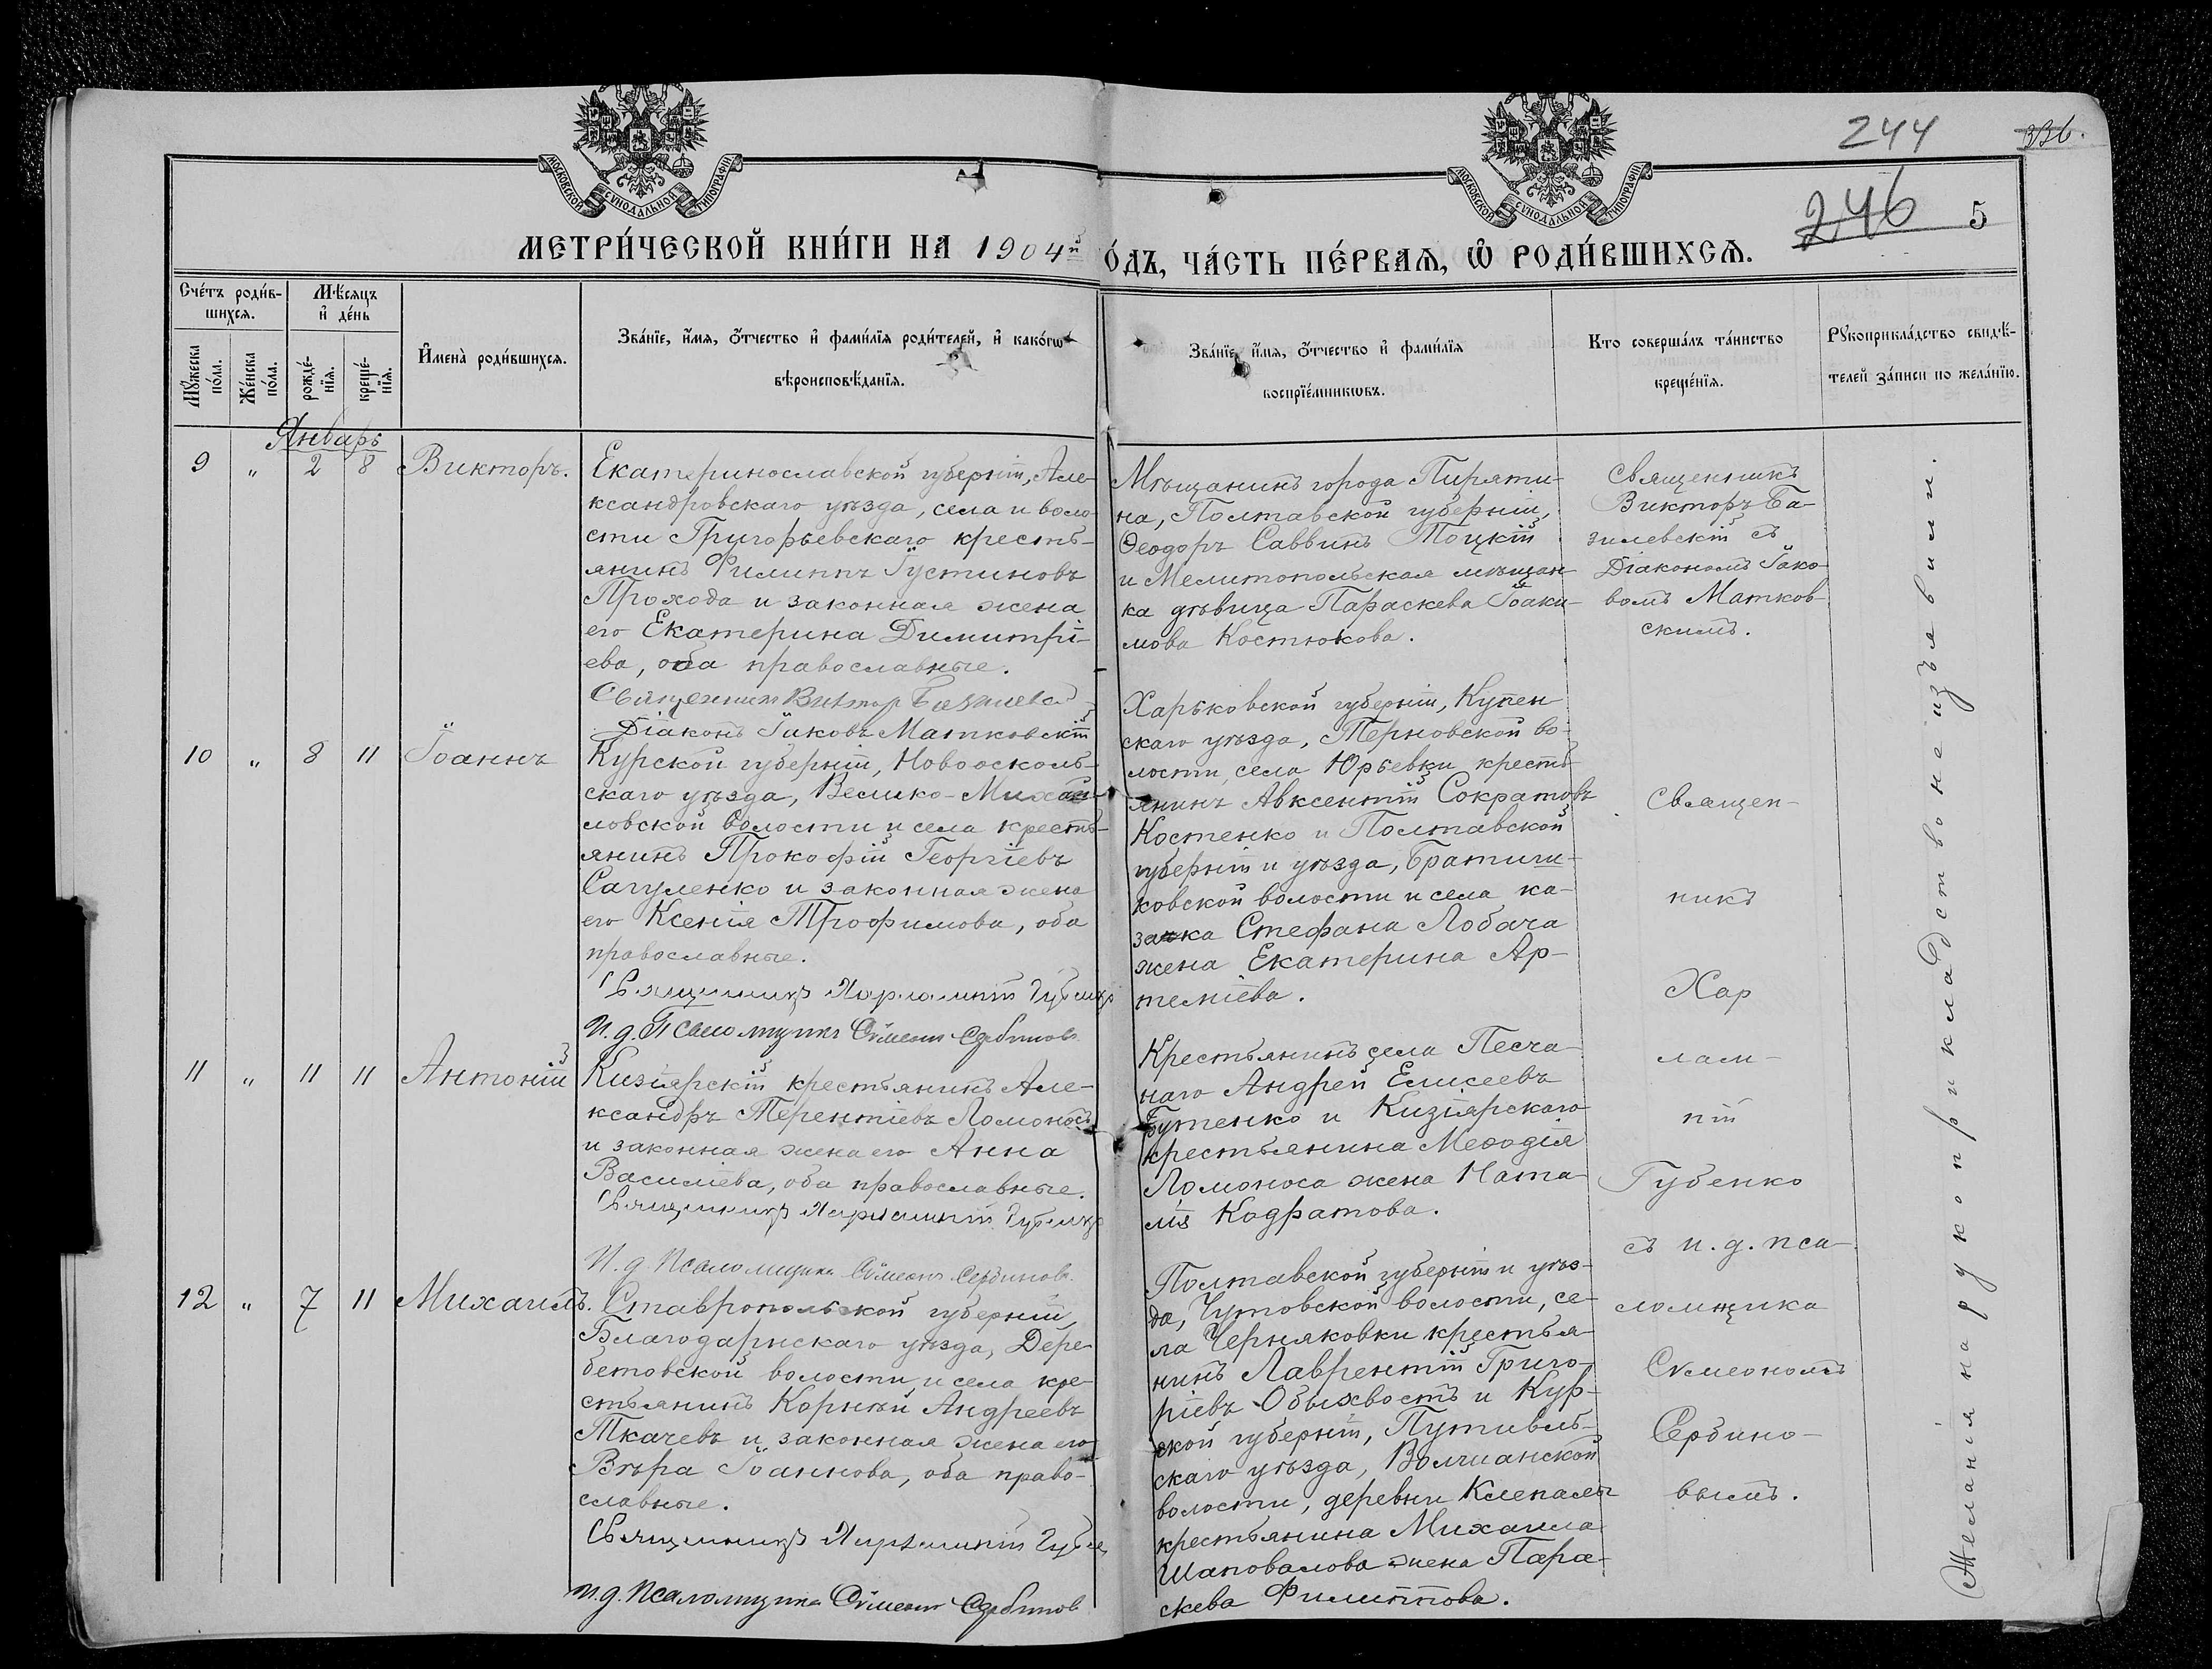 244
336.
246
5
МОСКОВСКОЙ СУНОДАЛЬНОЙ ТИПОГРАФІИ
МОСКОВСКОЙ СУНОДАЛЬНОЙ ТИПОГРАФІИ
МЕТРИ́ЧЕСКОЙ КНИ́ГИ НА 1904й
О́ДЪ, ЧА́СТЬ ПЕ́РВАѦ, Ѡ҆ РОДИ́ВШИХСѦ.
Сче́тъ роди́в-
шихсѧ.
Мꙋжеска по́ла.
Же́нска по́ла.
Мѣ́сѧцъ
и҆ де́нь
рожде́-
нїѧ.
креще́-
нїѧ.
И҆мена̀ роди́вшихсѧ.
Зва́нїе, и҆́мѧ, ѻ҆́тчество и҆ фами́лїѧ роди́телей, и҆ како́гѡ
вѣроисповѣ́данїѧ.
Зва́нїе, и҆́мѧ, ѻ҆́тчество и҆ фами́лїѧ
воспрїе́мникѡвъ.
Кто соверша́лъ та́инство
креще́нїѧ.
Рꙋкоприкла́дство свидѣ́-
телей за́писи по жела́нїю.
Январь
9 " 2 8 Викторъ.
Екатеринославской губерніи, Але-
ксандровскаго уѣзда, села и воло
сти Григорьевскаго кресть-
янинъ Филиппъ Іустиновъ
Прохода и законная жена
его Екатерина Димитрі-
ева, оба православные.
Священник Виктор Базилевскій
Діаконъ Іаковъ Матковскій
Мѣщанинъ города Пиряти-
на, Полтавской губерніи,
Ѳеодоръ Саввинъ Тоцкій
и Мелитопольская мѣщан-
ка дѣвица Параскева Іоаки-
мова Костюкова.
Священникъ
Викторъ Ба-
зилевскій съ
Діакономъ Іако-
вомъ Матков-
скимъ.
10 " 8 11 Іоаннъ
Курской губерніи, Новооскольскаго
скаго уѣзда, Велико-Михай-
ловской волости и села кресть-
янинъ Прокофій Георгіевъ
Сагуленко и законная жена
его Ксенія Трофимова, оба
православные.
Священникъ Харлампій Губенко
И.д. Псаломщика Сѵмеонъ Сербиновъ
Харьковской губерніи, Купен
скаго уѣзда, Терновской во-
лости, села Юрьевки кресть
янинъ Авксентій Сократовъ
Костенко и Полтавской
губерніи и уѣзда, Братиши-
ковской волости и села ка-
зака Стефана Лобача
жена Екатерина Ар-
теміева.
11 " 11 11 Антоній
Кизіярскій крестьянинъ Але-
ксандръ Терентіевъ Ломоносъ
и законная жена его Анна
Василіева, оба православные.
Священникъ Харлампій Губенко
И.д. Псаломщика Сѵмеонъ Сербиновъ.
Крестьянинъ села Песча-
наго Андрей Елисеевъ
Бутенко и Кизіярскаго
крестьянина Меѳодія
Ломоноса жена Ната-
лія Кодратова.
12 " 7 11 Михаилъ.
Ставропольской губерніи,
Благодарнскаго уѣзда, Дере-
бетовской волости и села кре-
стьянинъ Корнѣй Андреевъ
Ткачевъ и законная жена его
Вѣра Іоаннова, оба право-
славные.
Священникъ Харлампій Губен
И.д. Псаломщика Сѵмеонъ Сербинов
Полтавской губерніи и уѣз-
да, Чутовской волости, се-
ла Черняковки крестья-
нинъ Лаврентій Григо-
ріевъ Обыхвостъ и Кур-
ской губерніи, Путивль-
скаго уѣзда, Волчанской
волости, деревни Клепалы
крестьянина Михаила
Шаповалова жена Пара-
скева Филиппова.
Священ-
никъ
Хар
лам-
пій
Губенко
съ и.д. пса-
ломщика
Сѵмеономъ
Сербино-
вымъ.
Желанія на рукоприкладство не изъявили.